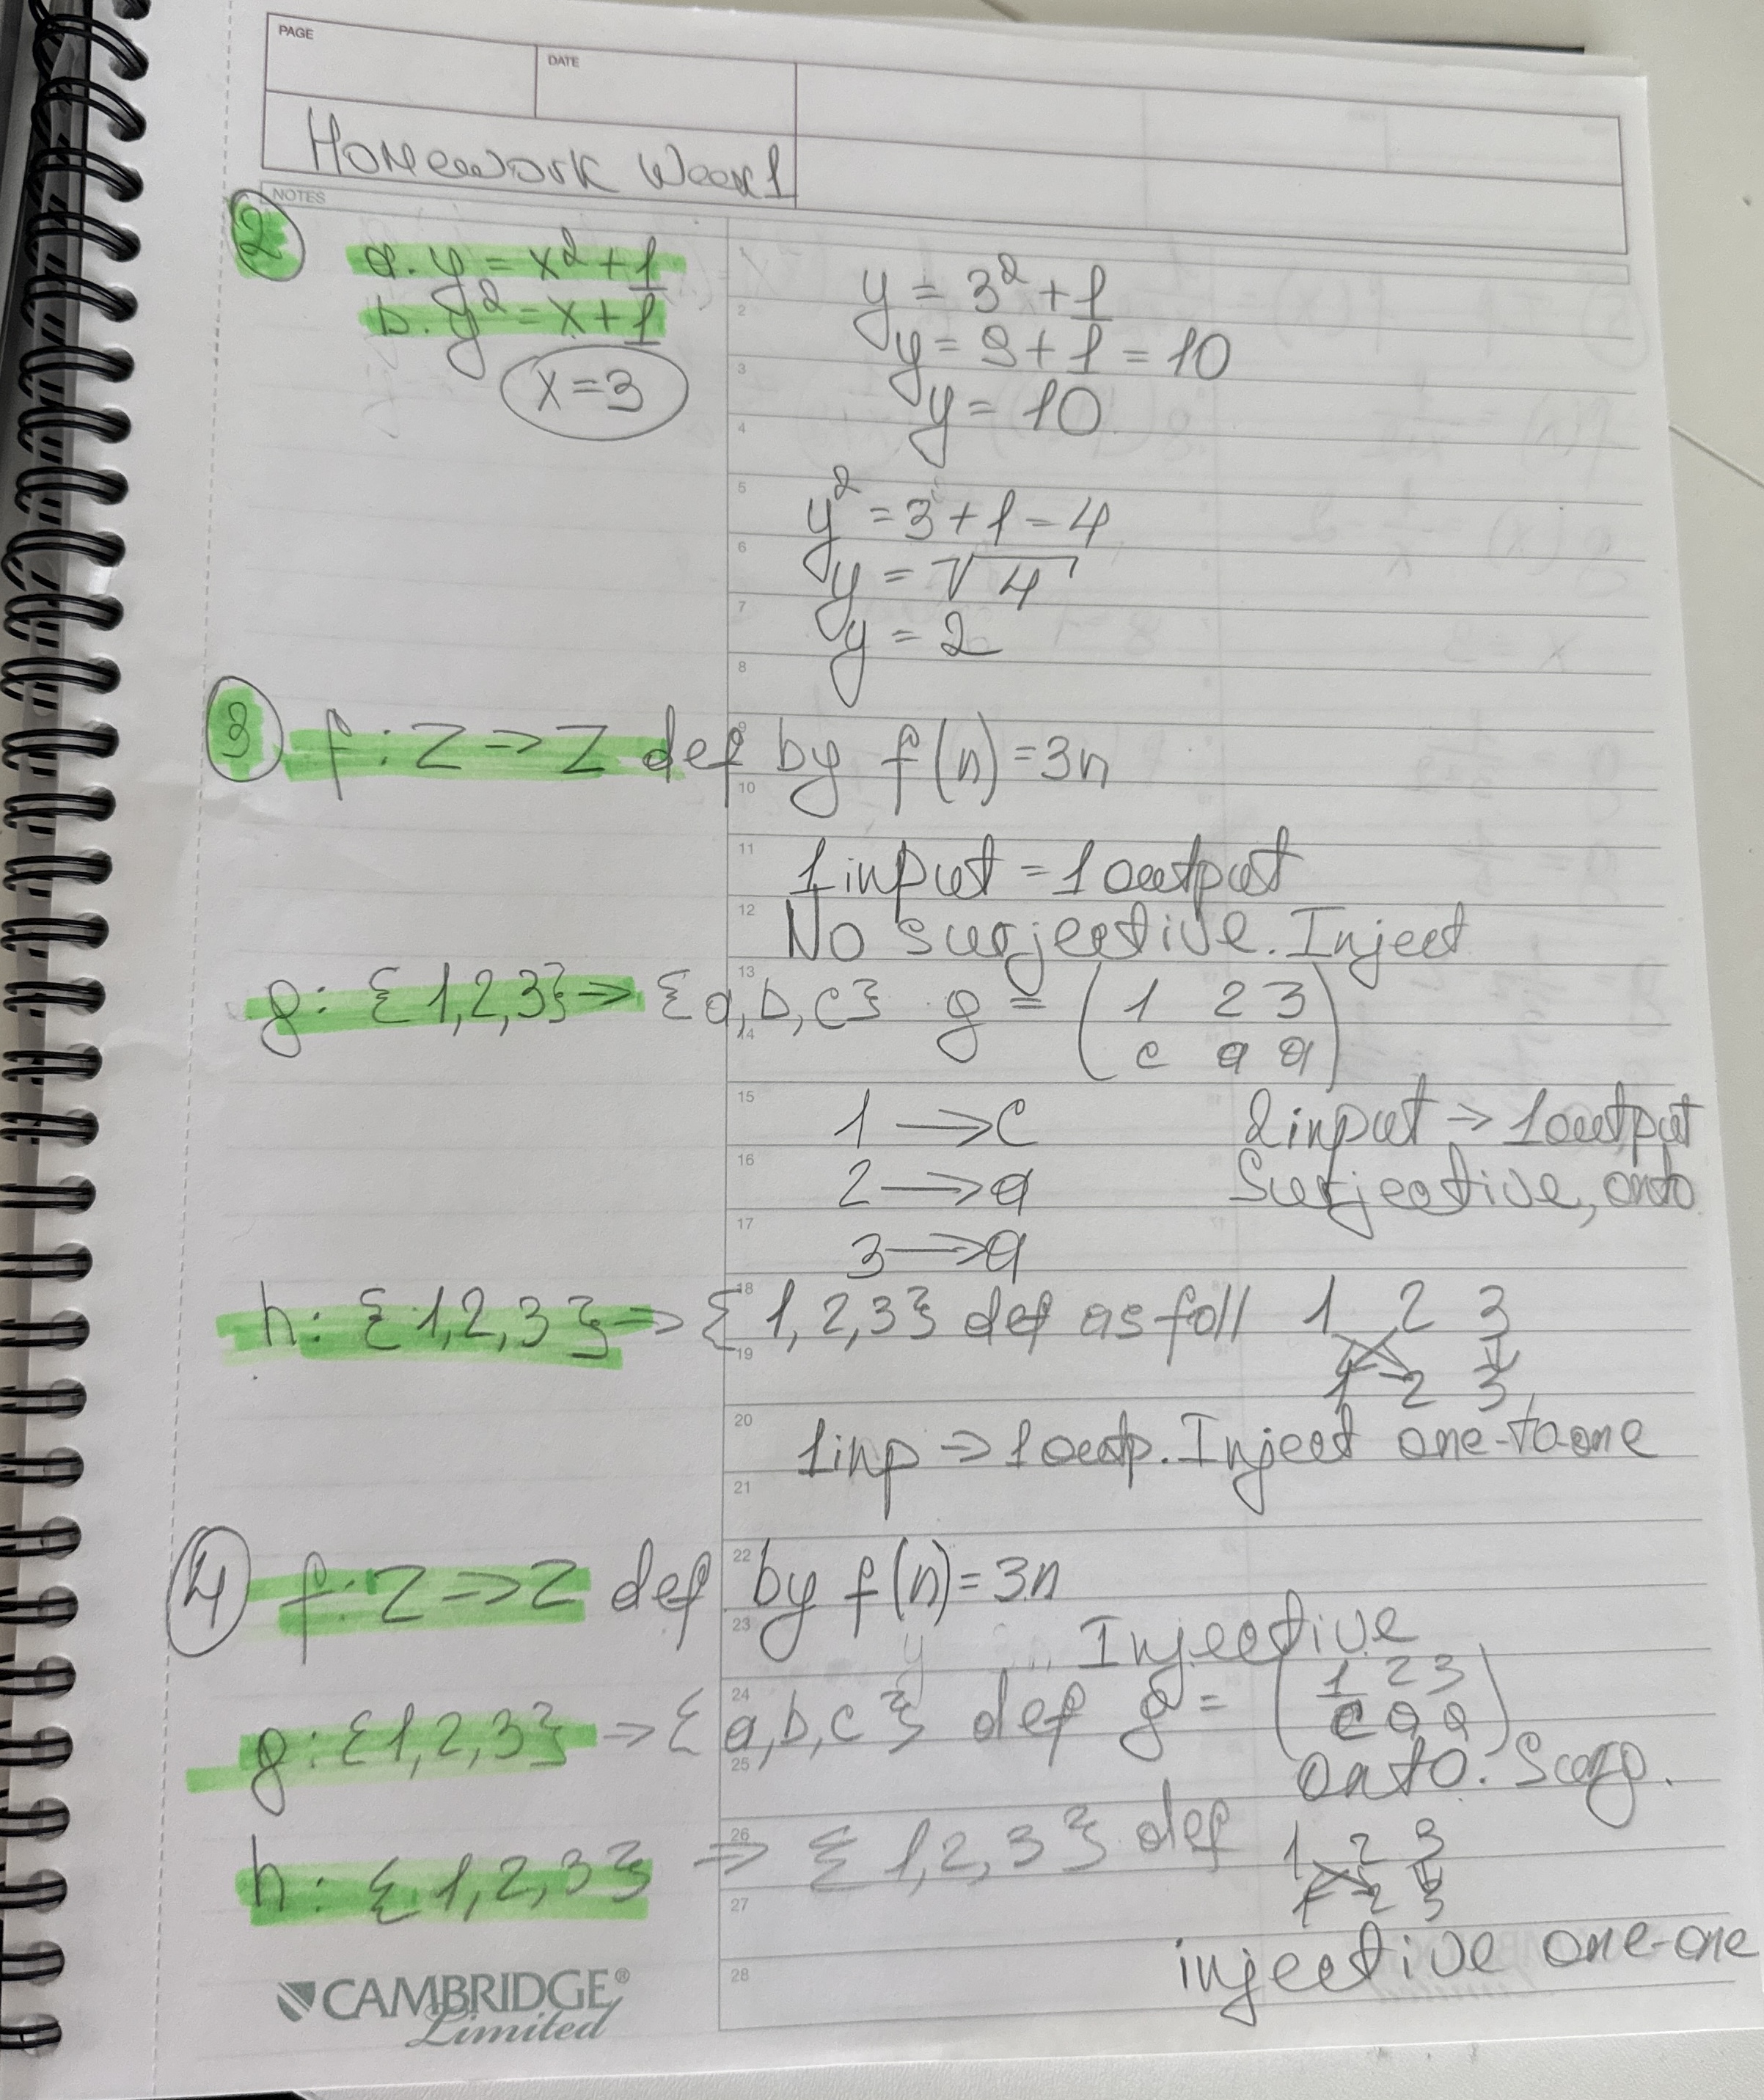 PAGE
DATE
Homework Week 1
NOTES
2
a. y = x² + 1
b. y² = x + 1
x = 3
y = 3² + 1
y = 9 + 1 = 10
y = 10
y² = 3 + 1 = 4
y = √4
y = 2
3 f: Z → Z def by f(n) = 3n
1 input = 1 output
No surjective. Inject
g: {1,2,3} → {a,b,c} g = (1 2 3
c a a)
1 → c 2 input → 1 output
2 → a Surjective, onto
3 → a
h: {1,2,3} → {1,2,3} def as foll 1 2 3
1 2 3
1 inp → 1 outp. Inject one-to-one
4 f: Z → Z def by f(n) = 3n
Injective
g: {1,2,3} → {a,b,c} def g = (1 2 3
c a a)
onto. Surj.
h: {1,2,3} → {1,2,3} def 1 2 3
1 2 3
injective one-one
1
2
3
4
5
6
7
8
9
10
11
12
13
14
15
16
17
18
19
20
21
22
23
24
25
26
27
28
CAMBRIDGE®
Limited